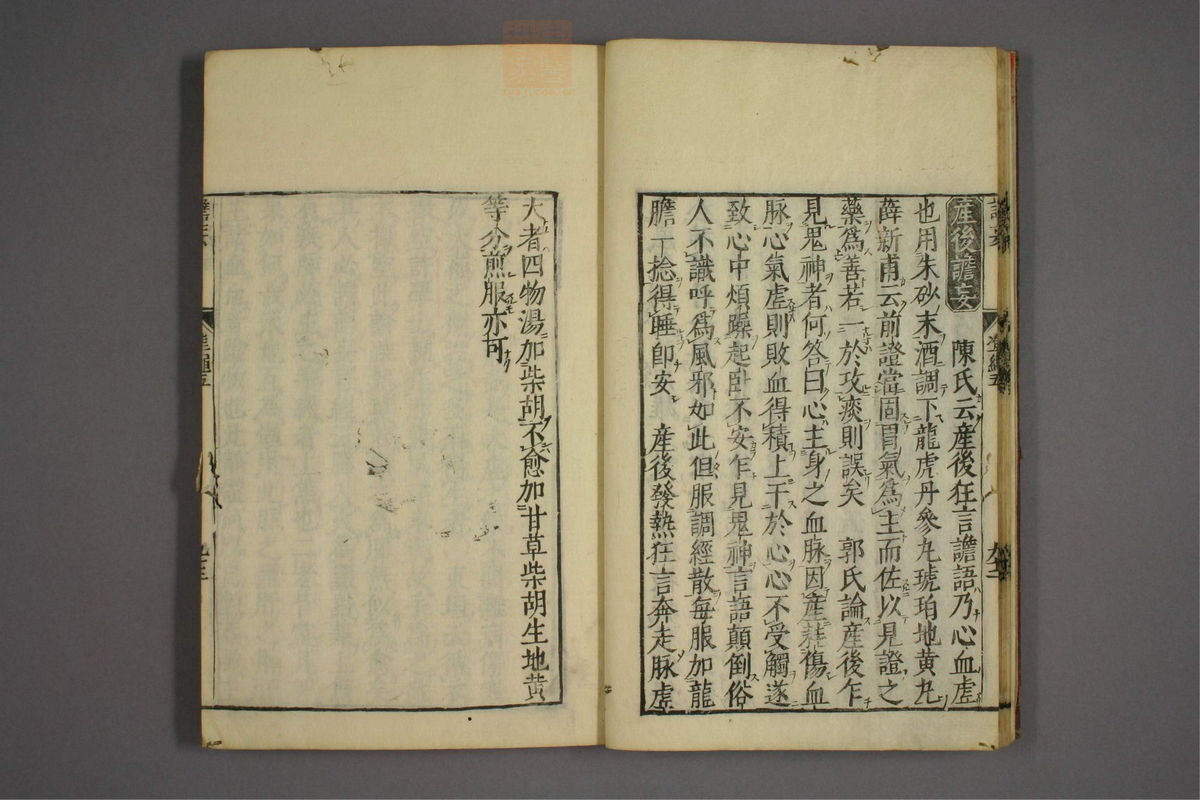 産後譫妄 陳氏云産後狂言譫語乃心血虛
也用朱砂末酒調下龍虎丹參丸琥珀地黄丸
薛新甫云前證當固胃氣爲主而佐以見證之
藥爲善若一於攻痰則誤矣 郭氏論産後乍
見鬼神者何答曰心主身之血脉因産耗傷血
脉心氣虛則敗血得積上干於心心不受觸遂
致心中煩躁起卧不安乍見鬼神言語顛倒俗
人不識呼爲風邪如此但服調經散每服加龍
膽一捻得睡即安 産後發熱狂言奔走脉虛
大者四物湯加柴胡不愈加甘草柴胡生地黄
等分煎服亦可